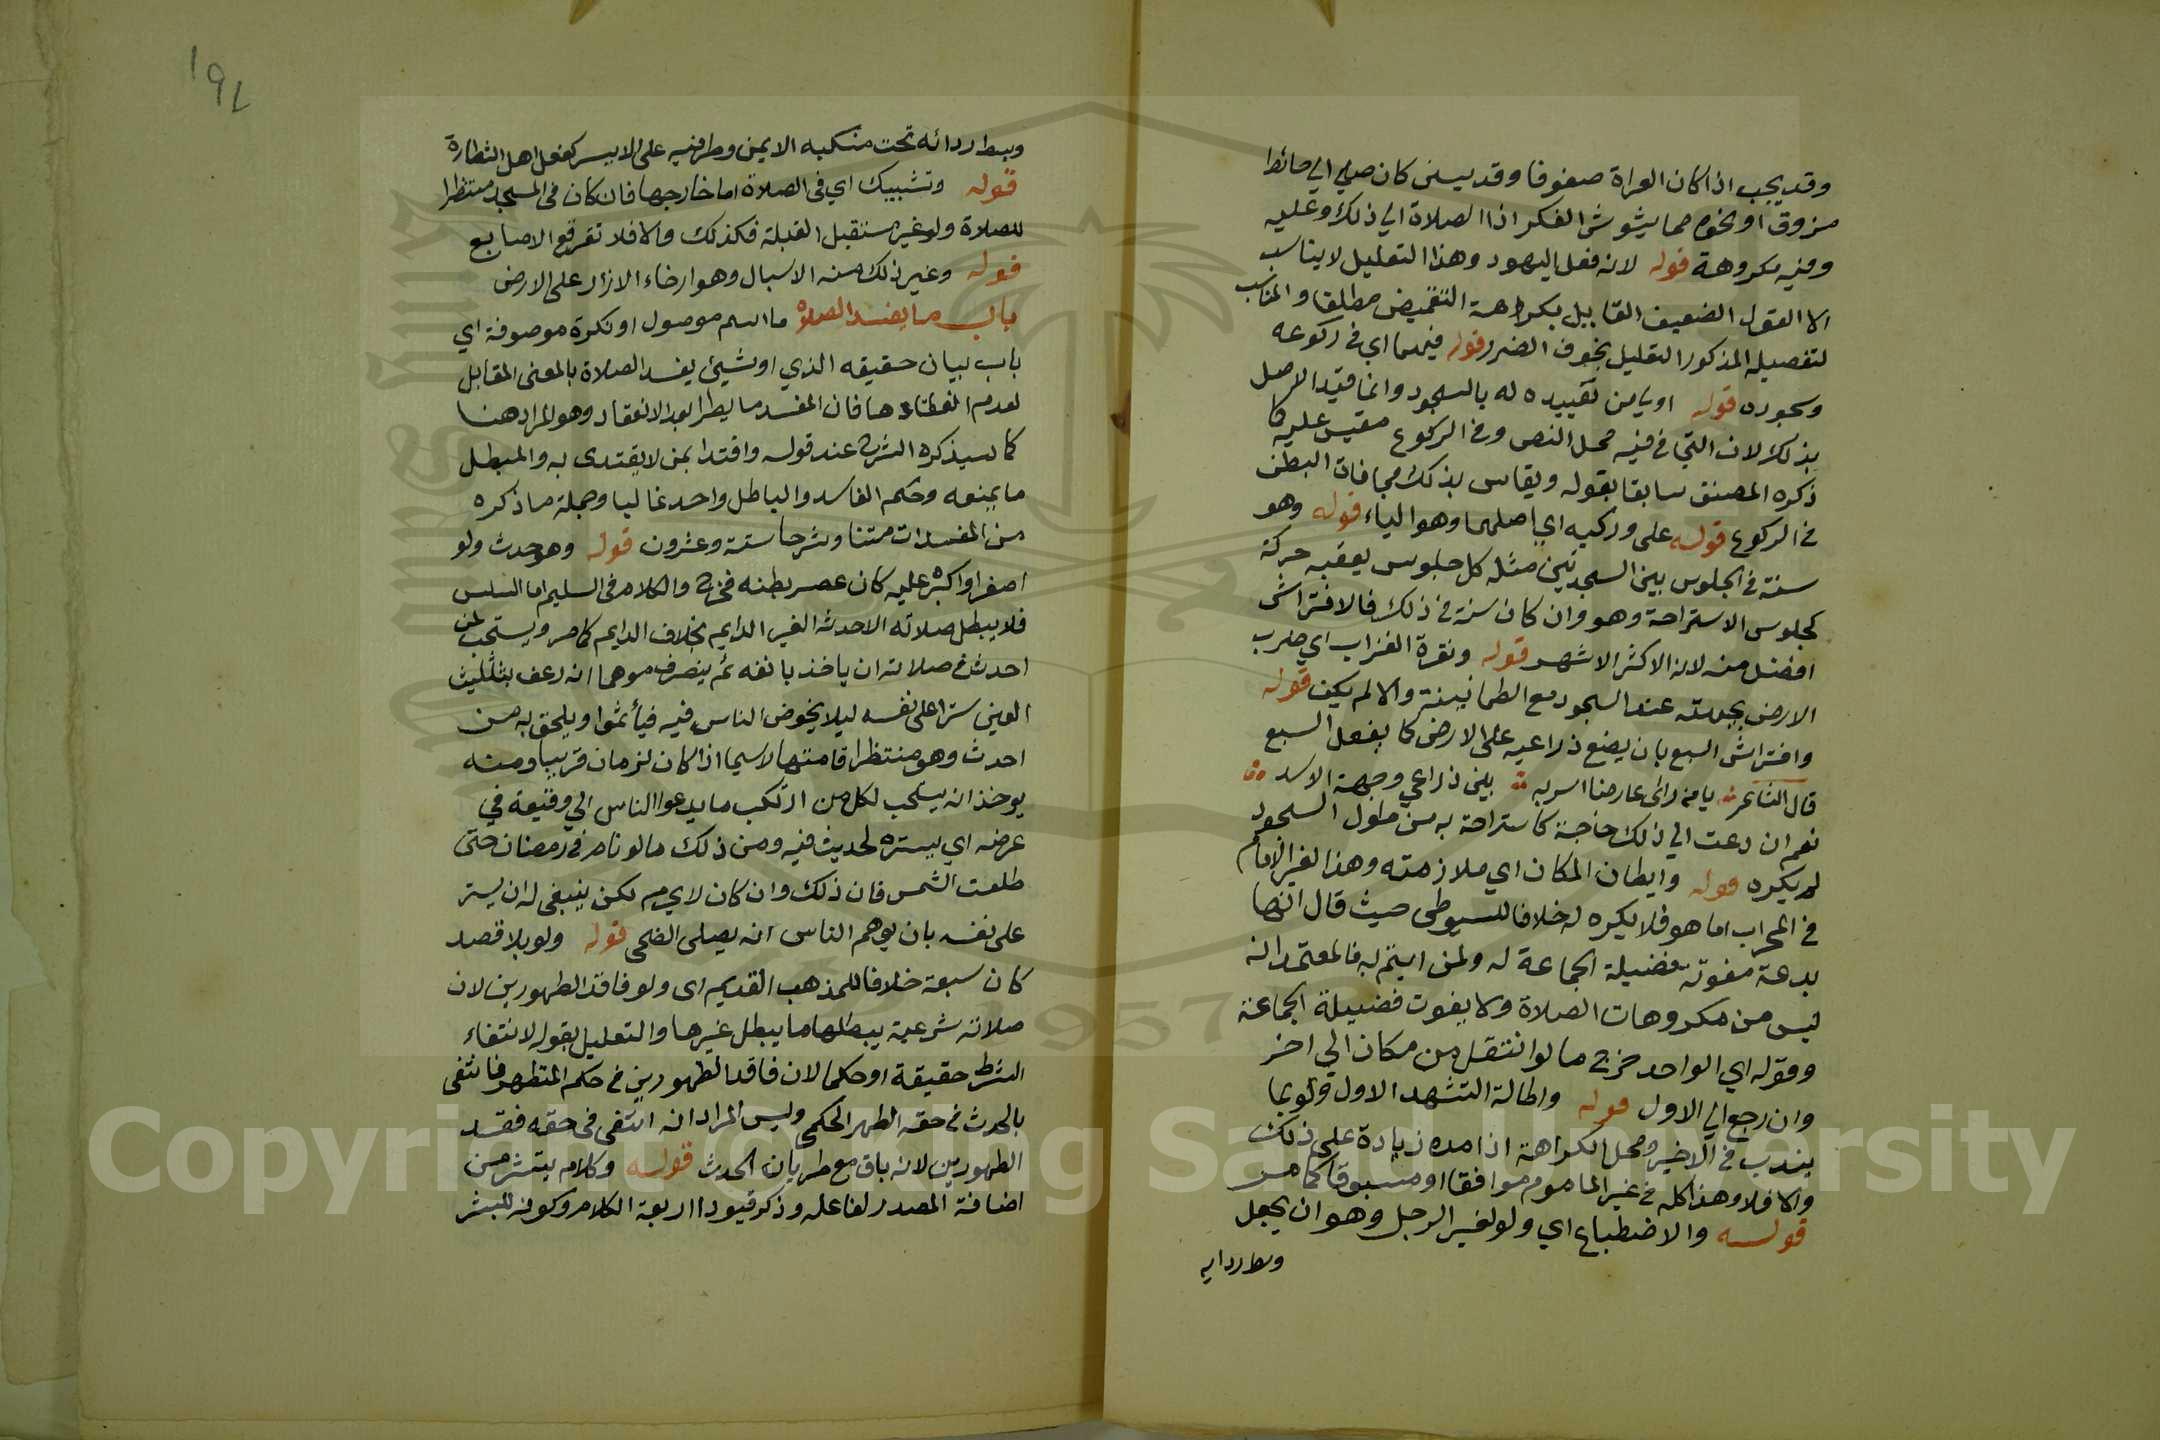 وقد يجب اذا كان العراة صفوفا وقد يسن كان صلى الي حائط
مزوق او نحوه مما يشوش الفكر اذا الصلاة الي ذلك وعليه
وفيه مكروهة قوله لانه فعل اليهود وهذا التعليل لا يناسب
الا القول الضعيف القايل بكراهة التغميض مطلقا والمناسب
لتفصيله المذكور التعليل بخوف الضرر قوله فيهما اي في ركوعه
وسجوده قوله اويامن تقييده له بالسجود وانما قيد الاصل
بذلك لان التي في فيه محل النص وفي الركوع مقيس عليه كما
ذكره المصنف سابقا بقوله ويقاس بذلك مجافات البطن
في الركوع قوله على وركيه اي اصلهما وهو الياء قوله وهو
سنة في الجلوس بين السجدتين مثله كل جلوس يعقبه حركة
كجلوس الاستراحة وهو وان كان سنة في ذلك فالافتراش
افضل منه لانه الاكثر الاشهر قوله ونقرة الغراب اي ضرب
الارض بجبهته عند السجود مع الطمانينة والا لم يكف قوله
وافتراش السبع بان يضع ذراعيه على الارض كما يفعل السبع
قال الشاعر يا من راى عارضا اسر به بين ذراعي وجبهة الاسد
نعم ان دعت الي ذلك حاجة كاستراحة به من طول السجود
لم يكره قوله وايطان المكان اي ملازمته وهذا لغير الامام
في المحراب اما هو فلا يكره له خلافا للسيوطي حيث قال انها
بدعة مفوتة فضيلة الجماعة له ولمن ايتم به فالمعتمد انه
ليس من مكروهات الصلاة ولا يفوت فضيلة الجماعة
وقوله اي الواحد خرج ما لو انتقل من مكان الي اخر
وان رجع الي الاول قوله واطالة التشهد الاول ولو بما
يندب في الاخير ومحل الكراهة اذا مده زيادة على ذلك
والا فلا وهذا كله في غير الماموم موافقا او مسبوقا كما مر
قوله والاضطباع اي ولو لغير الرجل وهو ان يجعل
وسط ردايه
١٩٢
وسط ردائه تحت منكبه الايمن وطرفيه على الايسر كفعل اهل الشطارة
قوله وتشبيك اي في الصلاة اما خارجها فان كان في المسجد منتظرا
للصلاة ولو غير مستقبل القبلة فكذلك والا فلا تفرقع الاصابع
قوله وغير ذلك منه الاسبال وهو ارخاء الازار على الارض
باب ما يفسد الصلاة ما اسم موصول او نكرة موصوفة اي
باب بيان حقيقه الذي او شيئ يفسد الصلاة بالمعنى المقابل
لعدم انعقادها فان المفسد ما يطرا بعد الانعقاد وهو المراد هنا
كما سيذكره الشرح عند قوله واقتدا بمن لا يقتدى به والمبطل
ما يمنعه وحكم الفاسد والباطل واحد غالبا وجملة ما ذكره
من المفسدات متنا وشرحا ستة وعشرون قوله وهو حدث ولو
اصغر او اكره عليه كان عصر بطنه فخرج والكلام في السليم اما السلس
فلا يبطل صلاته الا حدثه الغير الدايم بخلاف الدايم كما مر ويستحب لمن
احدث في صلاته ان ياخذ بانفه ثم ينصرف موهما انه رعف بتثليث
العين سترا على نفسه ليلا يخوض الناس فيه فيأثموا ويلحق به من
احدث وهو منتظر اقامتها لاسيما اذا كان لزمان قريبا ومنه
يوخذ انه يستحب لكل من ارتكب ما يدعوا الناس الي وقيعة في
عرضه اي يستره لحديث فيه ومن ذلك ما لو نام في رمضان حتى
طلعت الشمس فان ذلك وان كان لا يحرم لكن ينبغي له ان يستر
على نفسه بان يوهم الناس انه يصلى الضحى قوله ولو بلا قصد
كان سبعة خلافا للمذهب القديم اى ولو فاقد الطهورين لان
صلاته شرعية يبطلها ما يبطل غيرها والتعليل بقوله لانتفاء
الشرط حقيقة او حكما لان فاقد الطهورين في حكم المتطهر فانتفى
بالحدث في حقه الطهر الحكمي وليس المراد انه انتفى في حقه فقد
الطهورين لانه باق مع طريان الحدث قوله وكلام يبتشر من
اضافة المصدر لفاعله وذكر قيودا اربعة الكلام وكونه للبشر
Copyright © King Saud University
1957